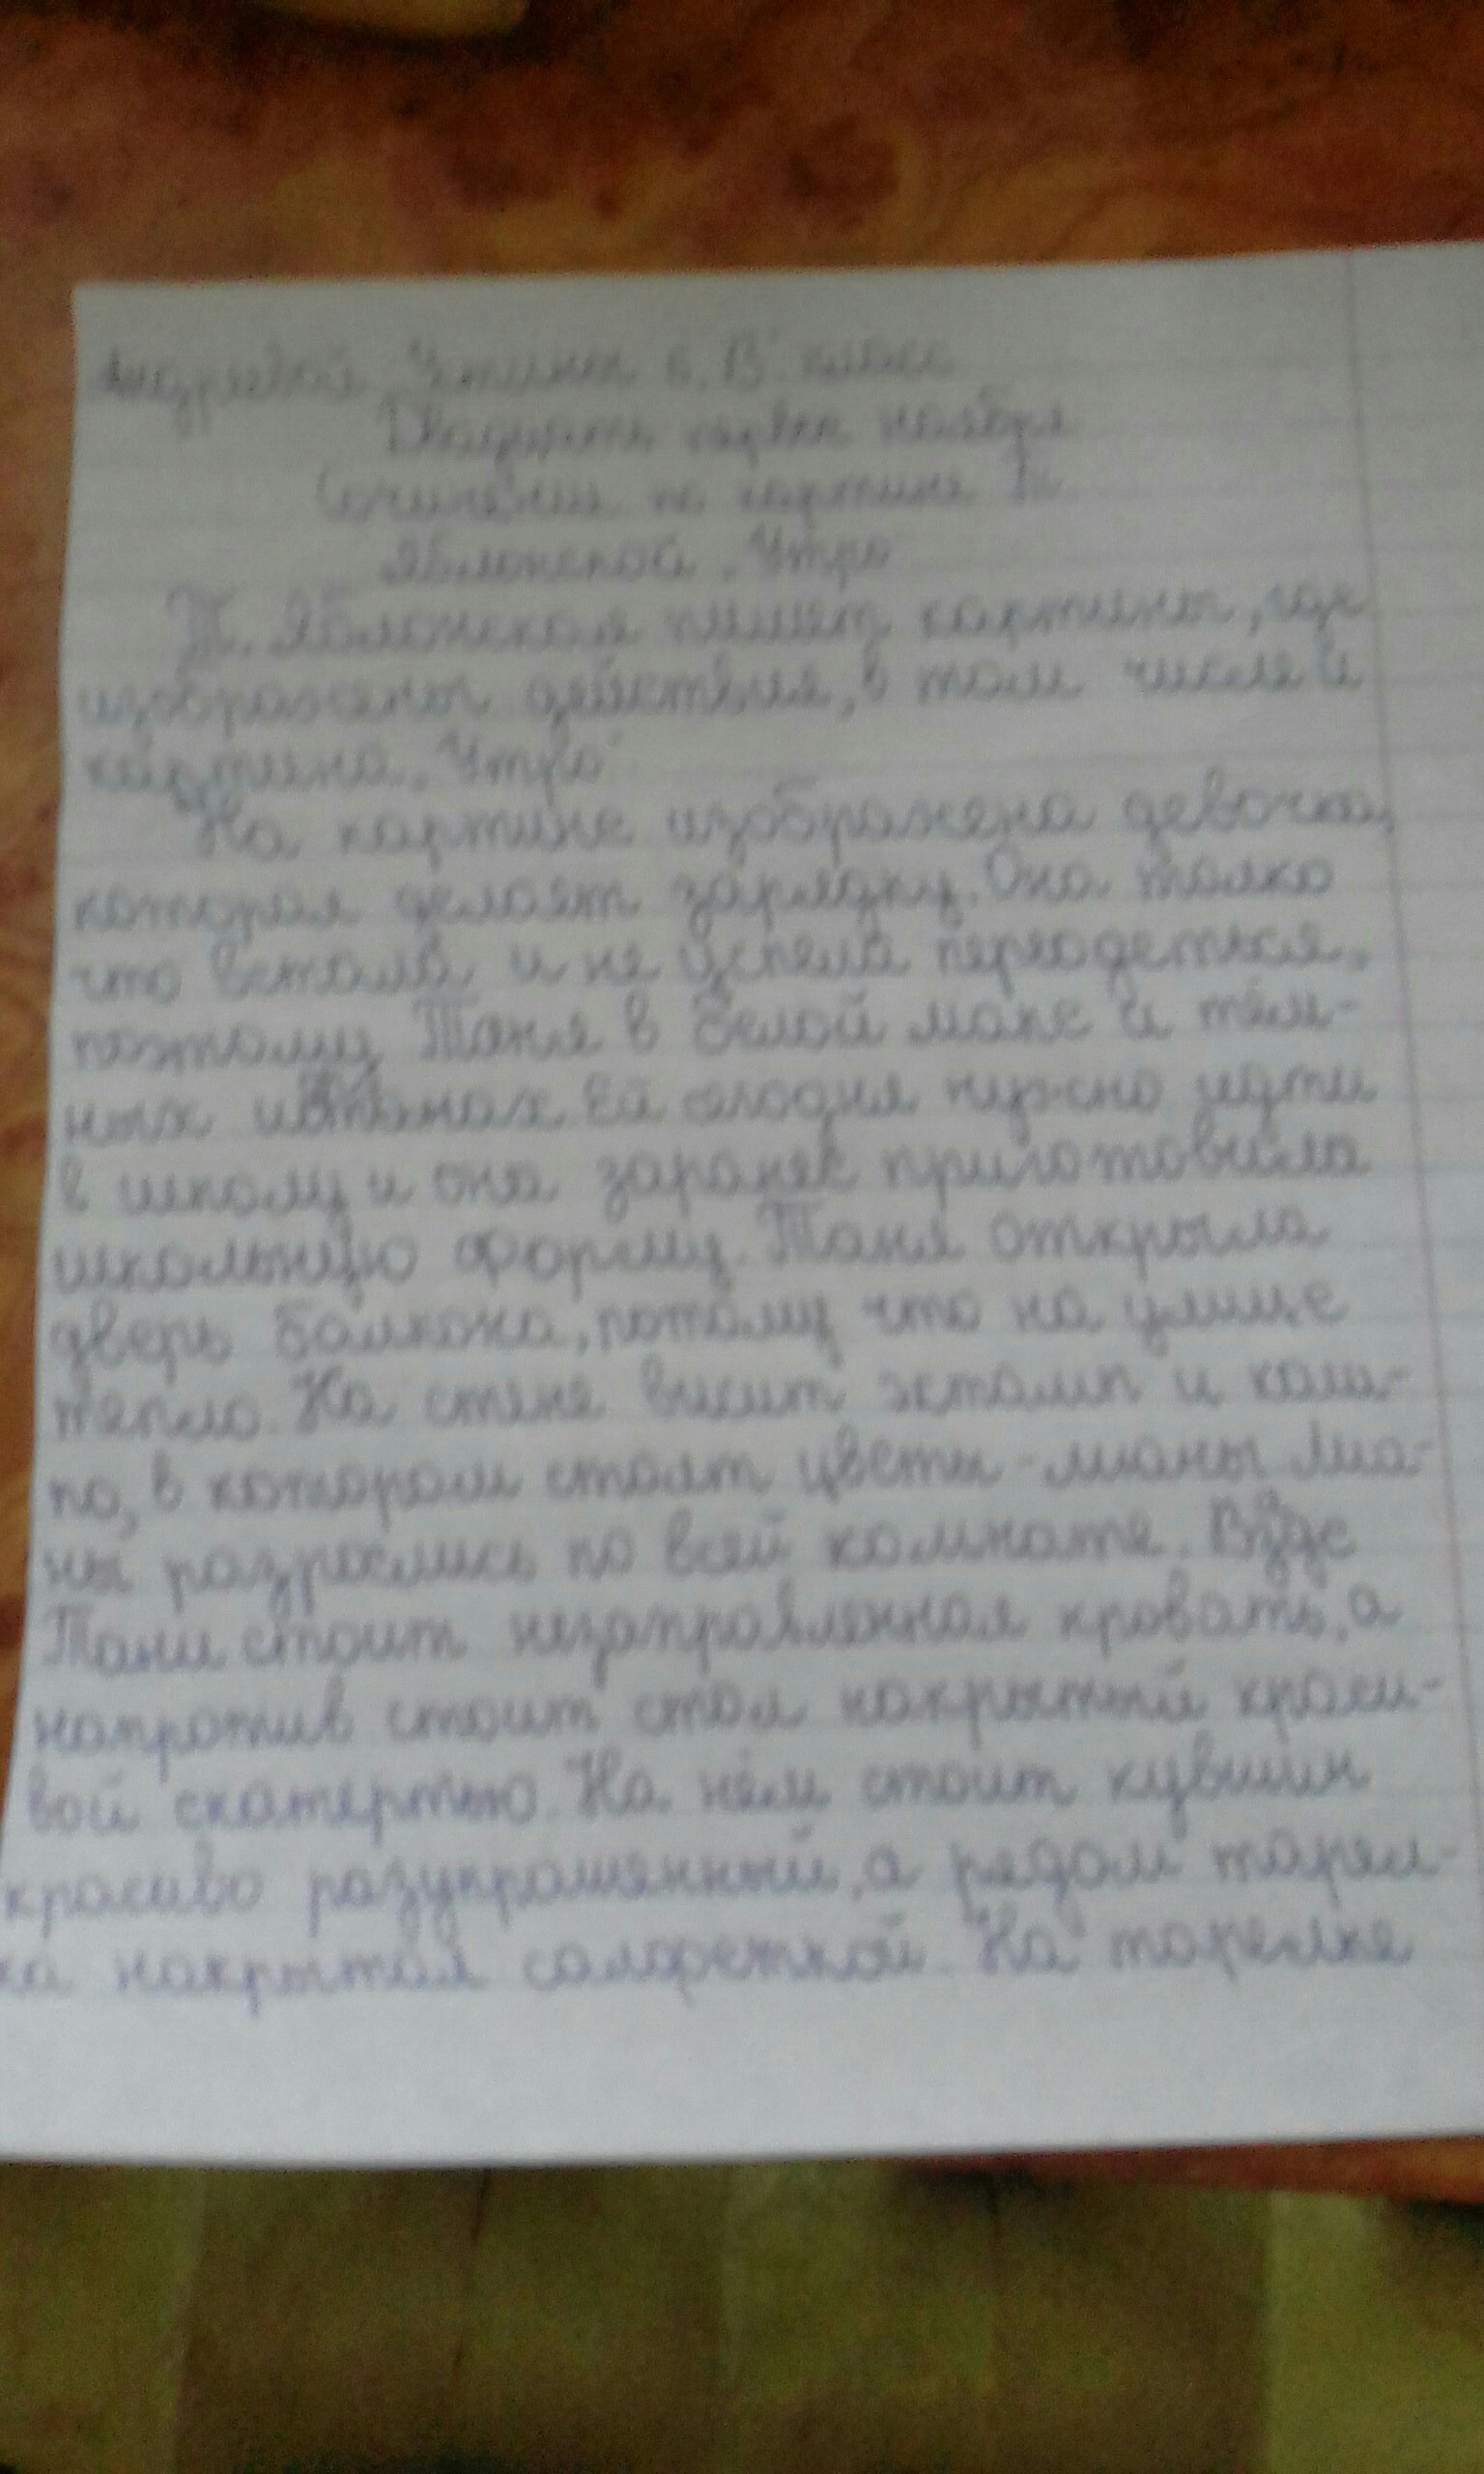 класс
Двадцать первое ноября
Сочинение по картине Т.
Яблонской „Утро"
Т. Яблонская пишет картины, где
изображены действия, в том числе и
картина „Утро"
На картине изображена девочка,
которая делает зарядку. Она толко
что встала и не успела переодеться,
поэтому Таня в белой маке и тём-
ных Ей сегодня нужно идти
в школу и она заранее приготовила
школьную форму. Таня открыла
дверь балкона, потому что на улице
тепло. На стене висит эстамп и каш-
по, в котором стоят цветы - лианы Лиа-
ны разрослись по всей комнате.
Тани стоит незаправленная кровать, а
напротив стоит стол накрытый краси-
вой скатертью. На нём стоит кувшин
красиво разукрашенный, а рядом тарел-
ка накрытая салфеткой. На тарелке